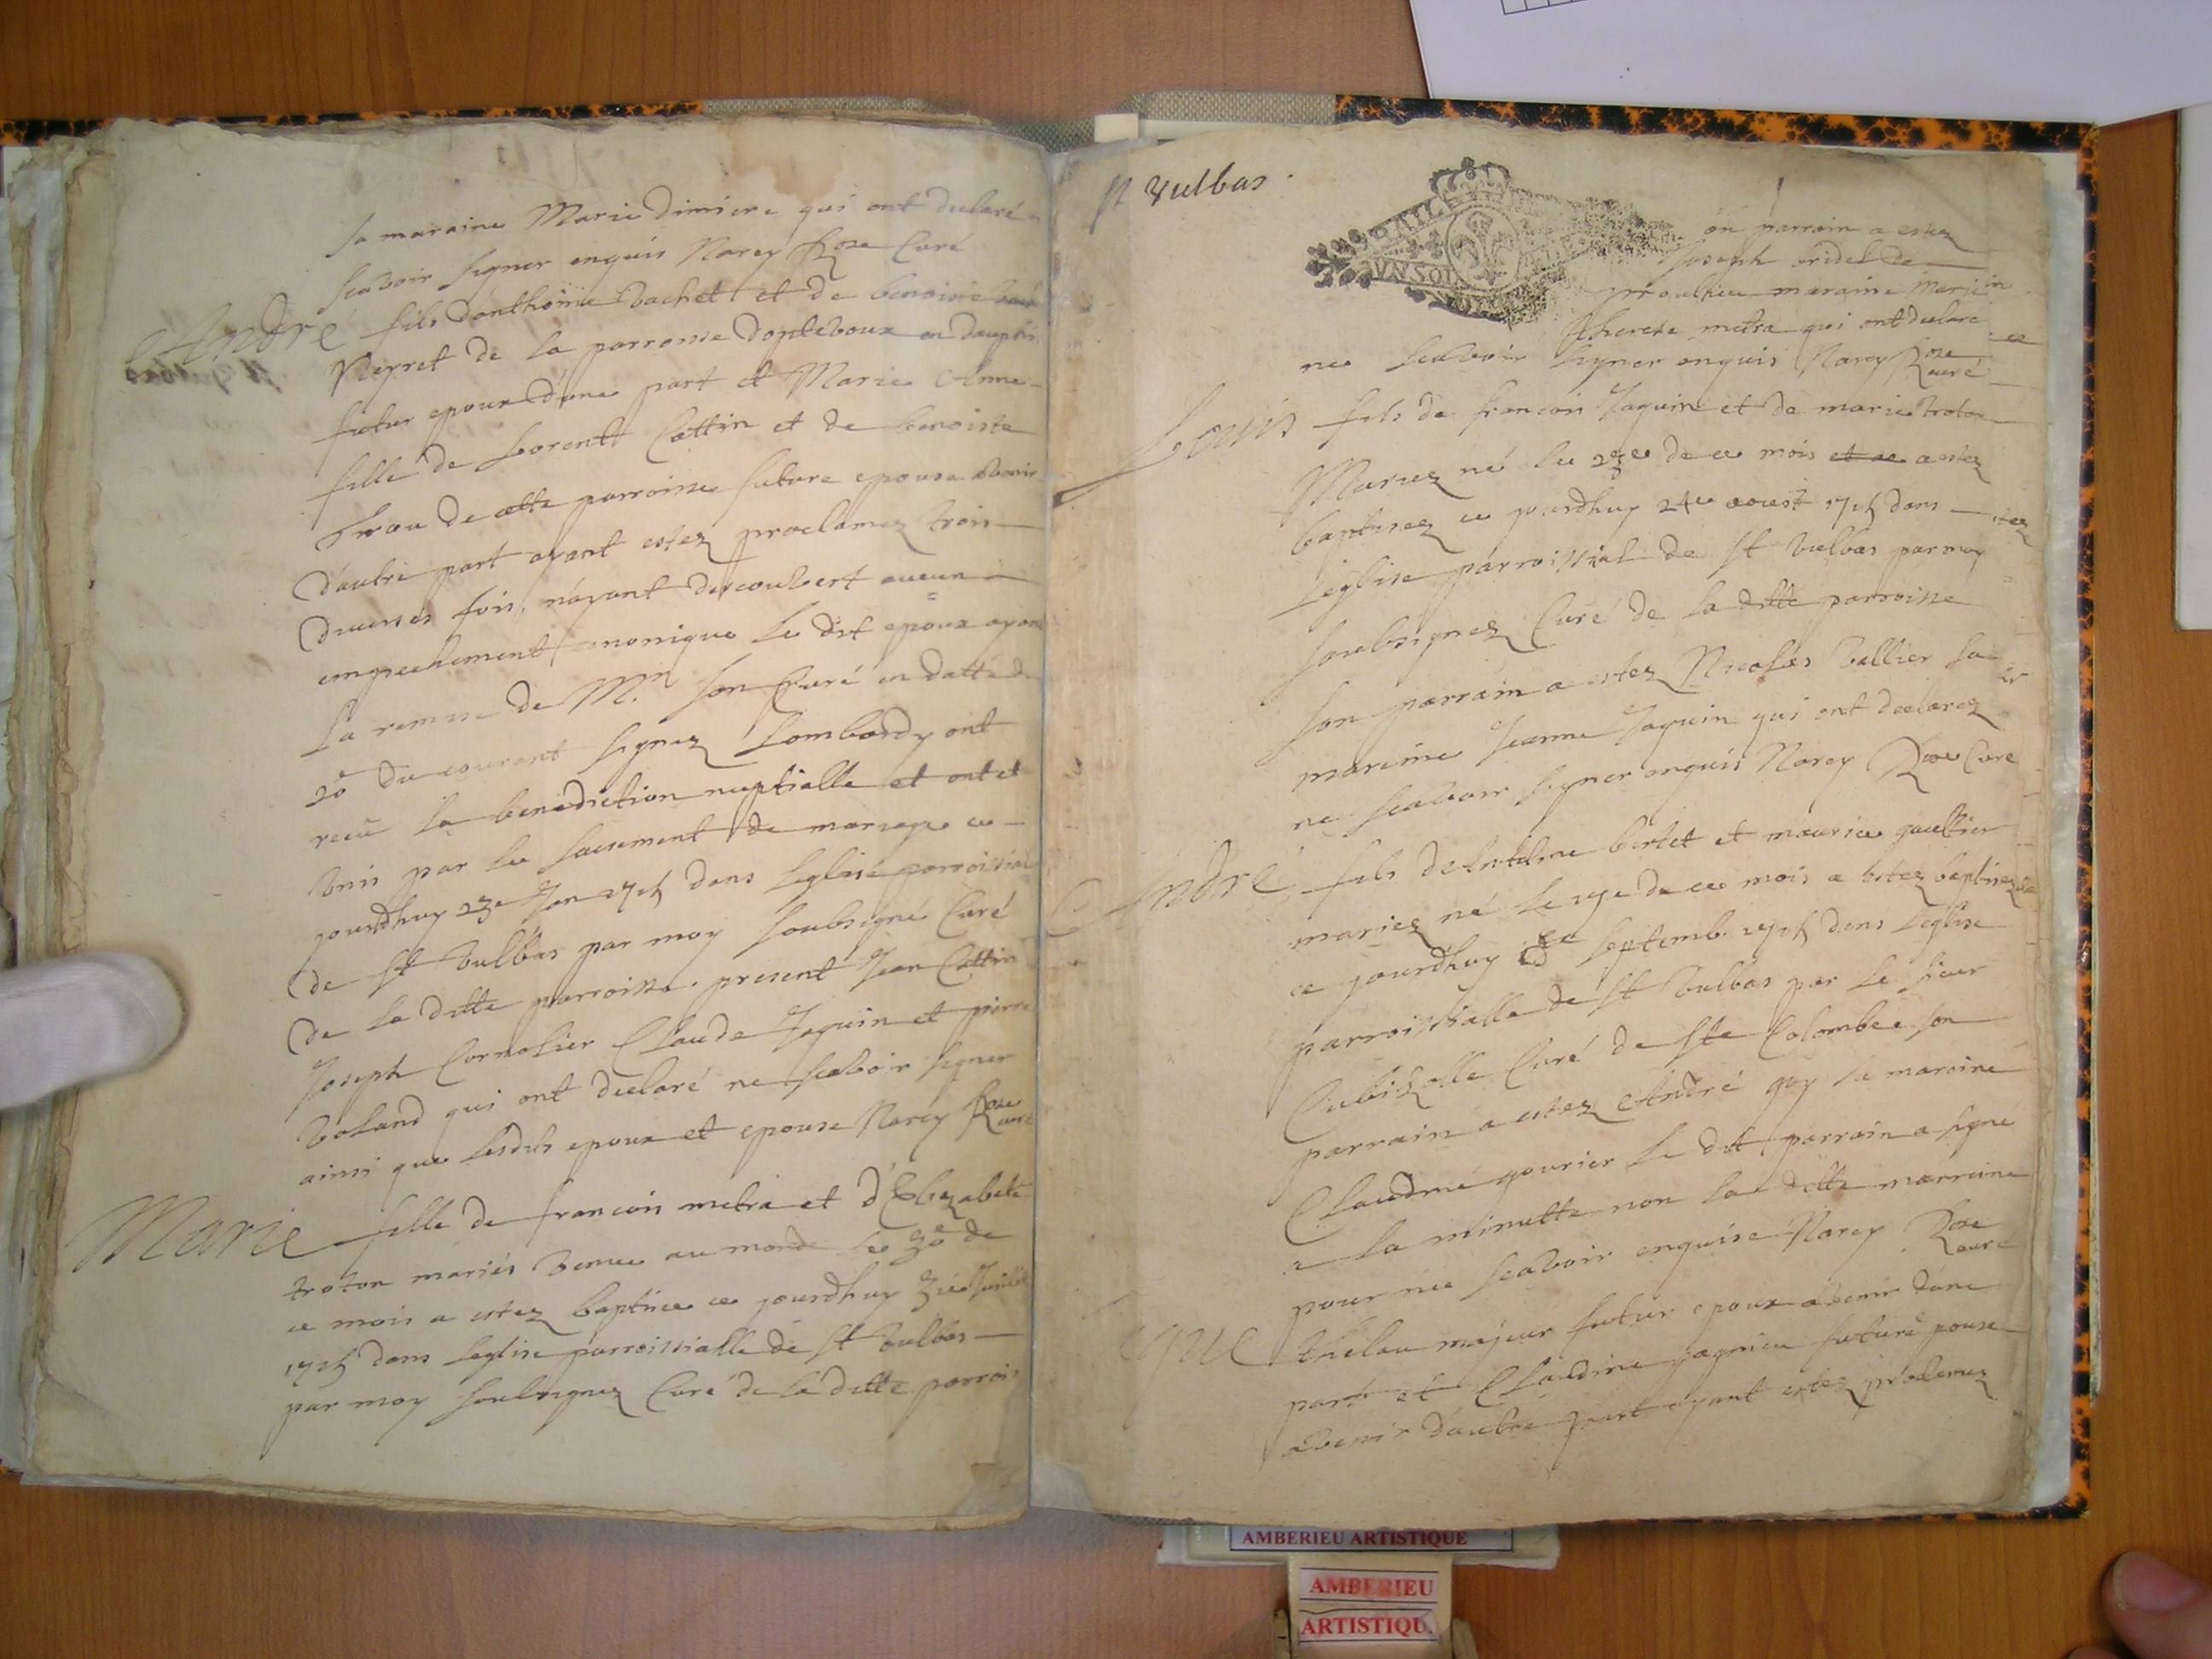 sa maraine Marie dimiere qui ont declaré
scavoir signer enquis Narcy Roze Curé
André fils danthoine Vachet et de benoiste
Peyret de la parroisse doptevoux en dauphi
futur epoux dune part et Marie Anne
fille de Lorent Cottin et de benoiste
Trou de cette parroisse future epouse avenir
dautre part ayant estez proclamez trois
diverses fois, nayant descouvert aucun
empechement canonique le dit epoux ayant
la remise de Mr. son Curé en datte d
20e du courant signez Lombardy ont
receu la benediction nuptialle et ont et
unis par le sacrement de mariage ce
jourdhuy 23e Jan 1715 dans leglise parroissial
de St Vulbas par moy soubsigné Curé
de la ditte parroisse. present Jean Cottin
Joseph Cornolier Claude Jaquin et pierre
Voland qui ont declaré ne scavoir signer
ainsi que lesdits epoux et epouse Narcy Roze curé
Marie fille de francois metra et d'Elizabete
troton mariés venue au monde le 30e de
ce mois a estez baptisee ce jourdhuy 31e Juillet
1715 dans leglise parroissialle de St Vulbas
par moy soubsignez Curé de la ditte parrois
St Vulbas.
UN SOL
on parrain a estez
Joseph aridel de
proulieu maraine Marie
therese metra qui ont declare
ne scavoir signer enquis Narcy Roze curé
Louis fils de francois Jaquin et de marie troton
Mariez né le 23e de ce mois et ce a estez
baptisez ce jourdhuy 24e aoust 1715 dans
leglise parroissial de St Vulbas par moy
soubsignez Curé de la ditte parroisse
son parrain a estez Nicolas Vallier sa
mareine Jeanne Jaquin qui ont declarez
ne scavoir signer enquis Narcy Roze Cure
André fils de Antelme bertet et mauricе gaultier
mariez né le 17e de ce mois a estez baptisez
ce jourdhuy septemb. 1715 dans leglise
parroissialle de St Vulbas par le sieur
Cubizolle Curé de Ste Colombe son
parrain a estez André guy sa maraine
Claudine gourier le dit parrain a signe
a la minutte non la ditte marreine
pour ne scavoir enquise Narcy Roze curé
thelau majeur futur epoux avenir dune
part et Claudine gagnieu future epouse
avenir dautre part ayant estez proclamez
AMBERIEU ARTISTIQUE
AMBERIEU
ARTISTIQU